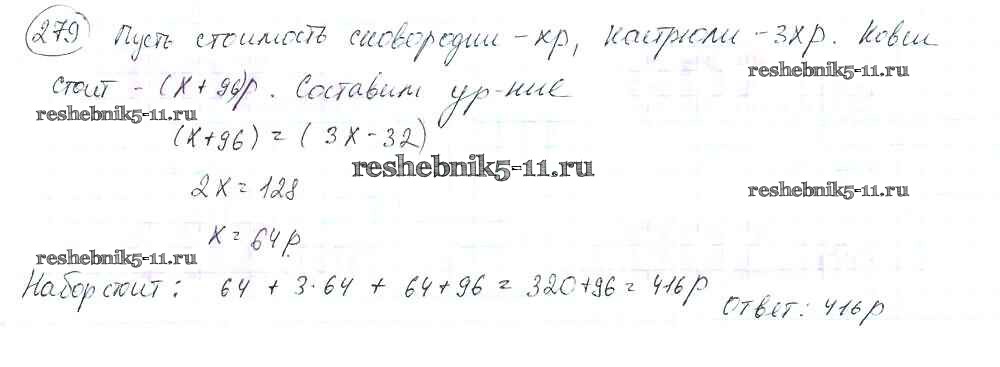 279 Пусть стоимость сковородки – хр, кастрюли – 3хр. Ковш
reshebnik5-11.ru
стоит – (х + 96)р. Составим ур-ние
reshebnik5-11.ru
(х+96) = (3х-32)
reshebnik5-11.ru
2х = 128
reshebnik5-11.ru
х = 64р.
reshebnik5-11.ru
Набор стоит: 64 + 3·64 + 64+96 = 320+96 = 416р
Ответ: 416р